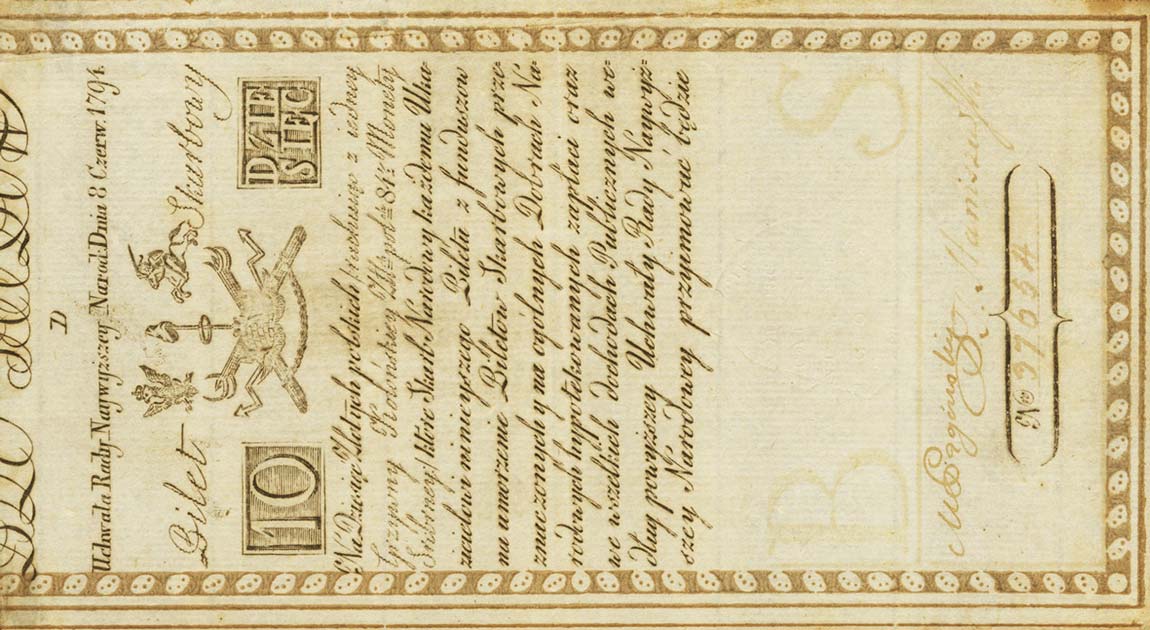 D
Uchwała Rady Naywyższey Narod: Dnia 8 Czerw. 1794.
Bilet Skarbowy
10 DZIE
SIĘC
Na Dziesięć Złotych polskich rachuiąc z iedney
Grzywny Kolońskiey Złt: pol: 84½ w Monecie
Srebrney, które Skarb Narodowy każdemu Uka=
zicielowi ninieyszego Biletu z funduszow
na umorzenie Biletow Skarbowych prze=
znaczonych y na ogólnych Dobrach Na=
rodowych hypotekowanych zapłaci oraz
we wszelkich dochodach Publicznych we=
dług powyższey Uchwały Rady Naywyż=
szey Narodowey przyimować będzie
B S
No 39634